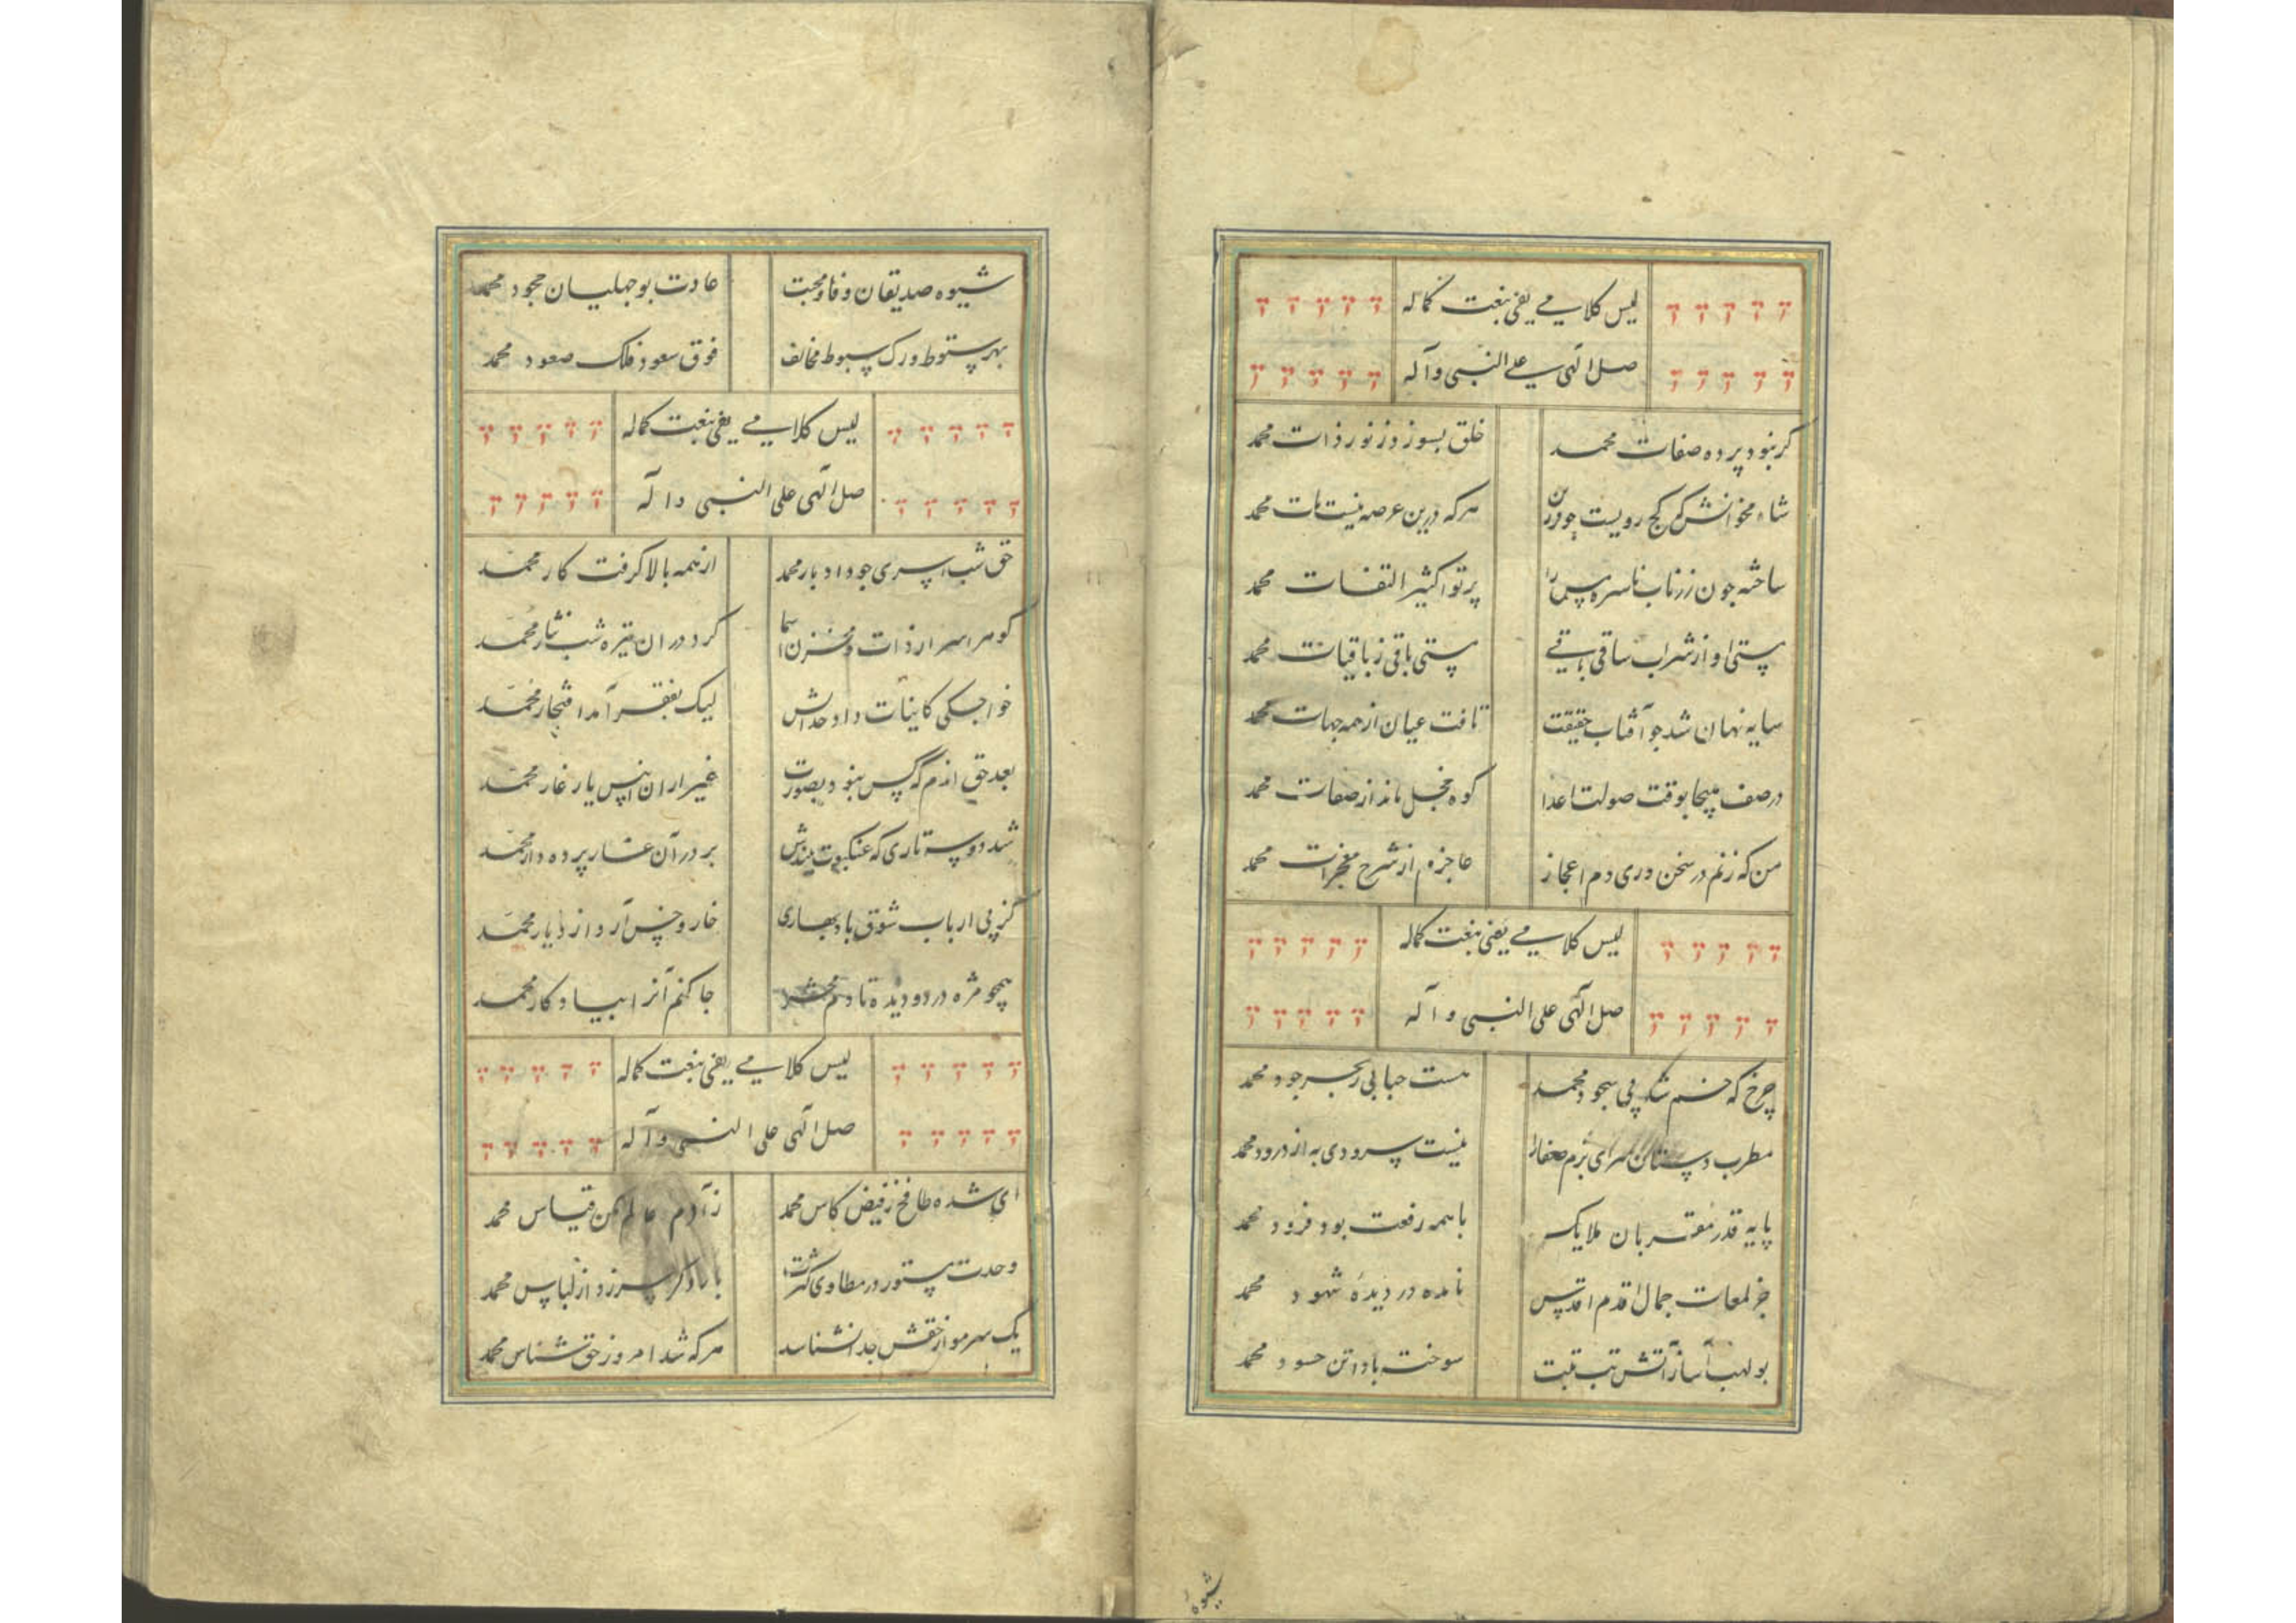 لیس کلامی یفی بنعت کماله
صل الهی علی النبی و آله
گر نبود پرده صفات محمد خلق بسوزد ز نور ذات محمد
شاه مخوانش که کج رویست چو فرزین هر که درین عرصه نیست مات محمد
ساخته چون زر ناب ناسره مس را پرتو اکثیر التفات محمد
مستی او از شراب ساقی باقی مستی باقی ز باقیات محمد
سایه نهان شد چو آفتاب حقیقت تافت عیان از همه جهات محمد
در صف هیجا بوقت صولت اعدا کوه مخجل ماند از صفات محمد
من که زنم در سخن دری دم اعجاز عاجزم از شرح معجزات محمد
لیس کلامی یفی بنعت کماله
صل الهی علی النبی و آله
چرخ که خم شد پی سجود محمد هست حبابی ز بحر جود محمد
مطرب دستان سرای بزم صفا را نیست سرودی به از درود محمد
پایه قدر مقربان ملایک با همه رفعت بود فرود محمد
جز لمعات جمال اقدم اقدس نامده در دیدهٔ شهود محمد
بولهب آسا ز آتش تب تبت سوخت بادا تن حسود محمد
شیوه
شیوه صدیقان وفا و محبت عادت بوجهلیان جحود محمد
بهر سقوط درک هبوط مخالف فوق سعود فلک صعود محمد
لیس کلامی یفی بنعت کماله
صل الهی علی النبی و آله
حق شب اسری چو داد بار محمد از همه بالا گرفت کار محمد
گوهر اسرار ذات و مخزن اسما کرد در ان تیره شب نثار محمد
خواجگی کاینات داد خداش لیک بفقر آمد افتخار محمد
بعد حق اندم که کس نبود بصورت غیر از ان انیس یار غار محمد
شد دو سه تاری که عنکبوت تنیدش بر در آن غار پرده دار محمد
کز پی ارباب شوق باد بهاری خار و خس آرد از دیار محمد
همچو مژه در دو دیده تا دم محشر جا کنم آنرا بیادکار محمد
لیس کلامی یفی بنعت کماله
صل الهی علی النبی و آله
ای شده طافح ز فیض کاس محمد ز آدم عالم مکن قیاس محمد
وحدت مستور در مطاوی کثرت بار دکر سر زد از لباس محمد
یک سر مو از حقش جدا نشناسد هر که شد امروز حق شناس محمد